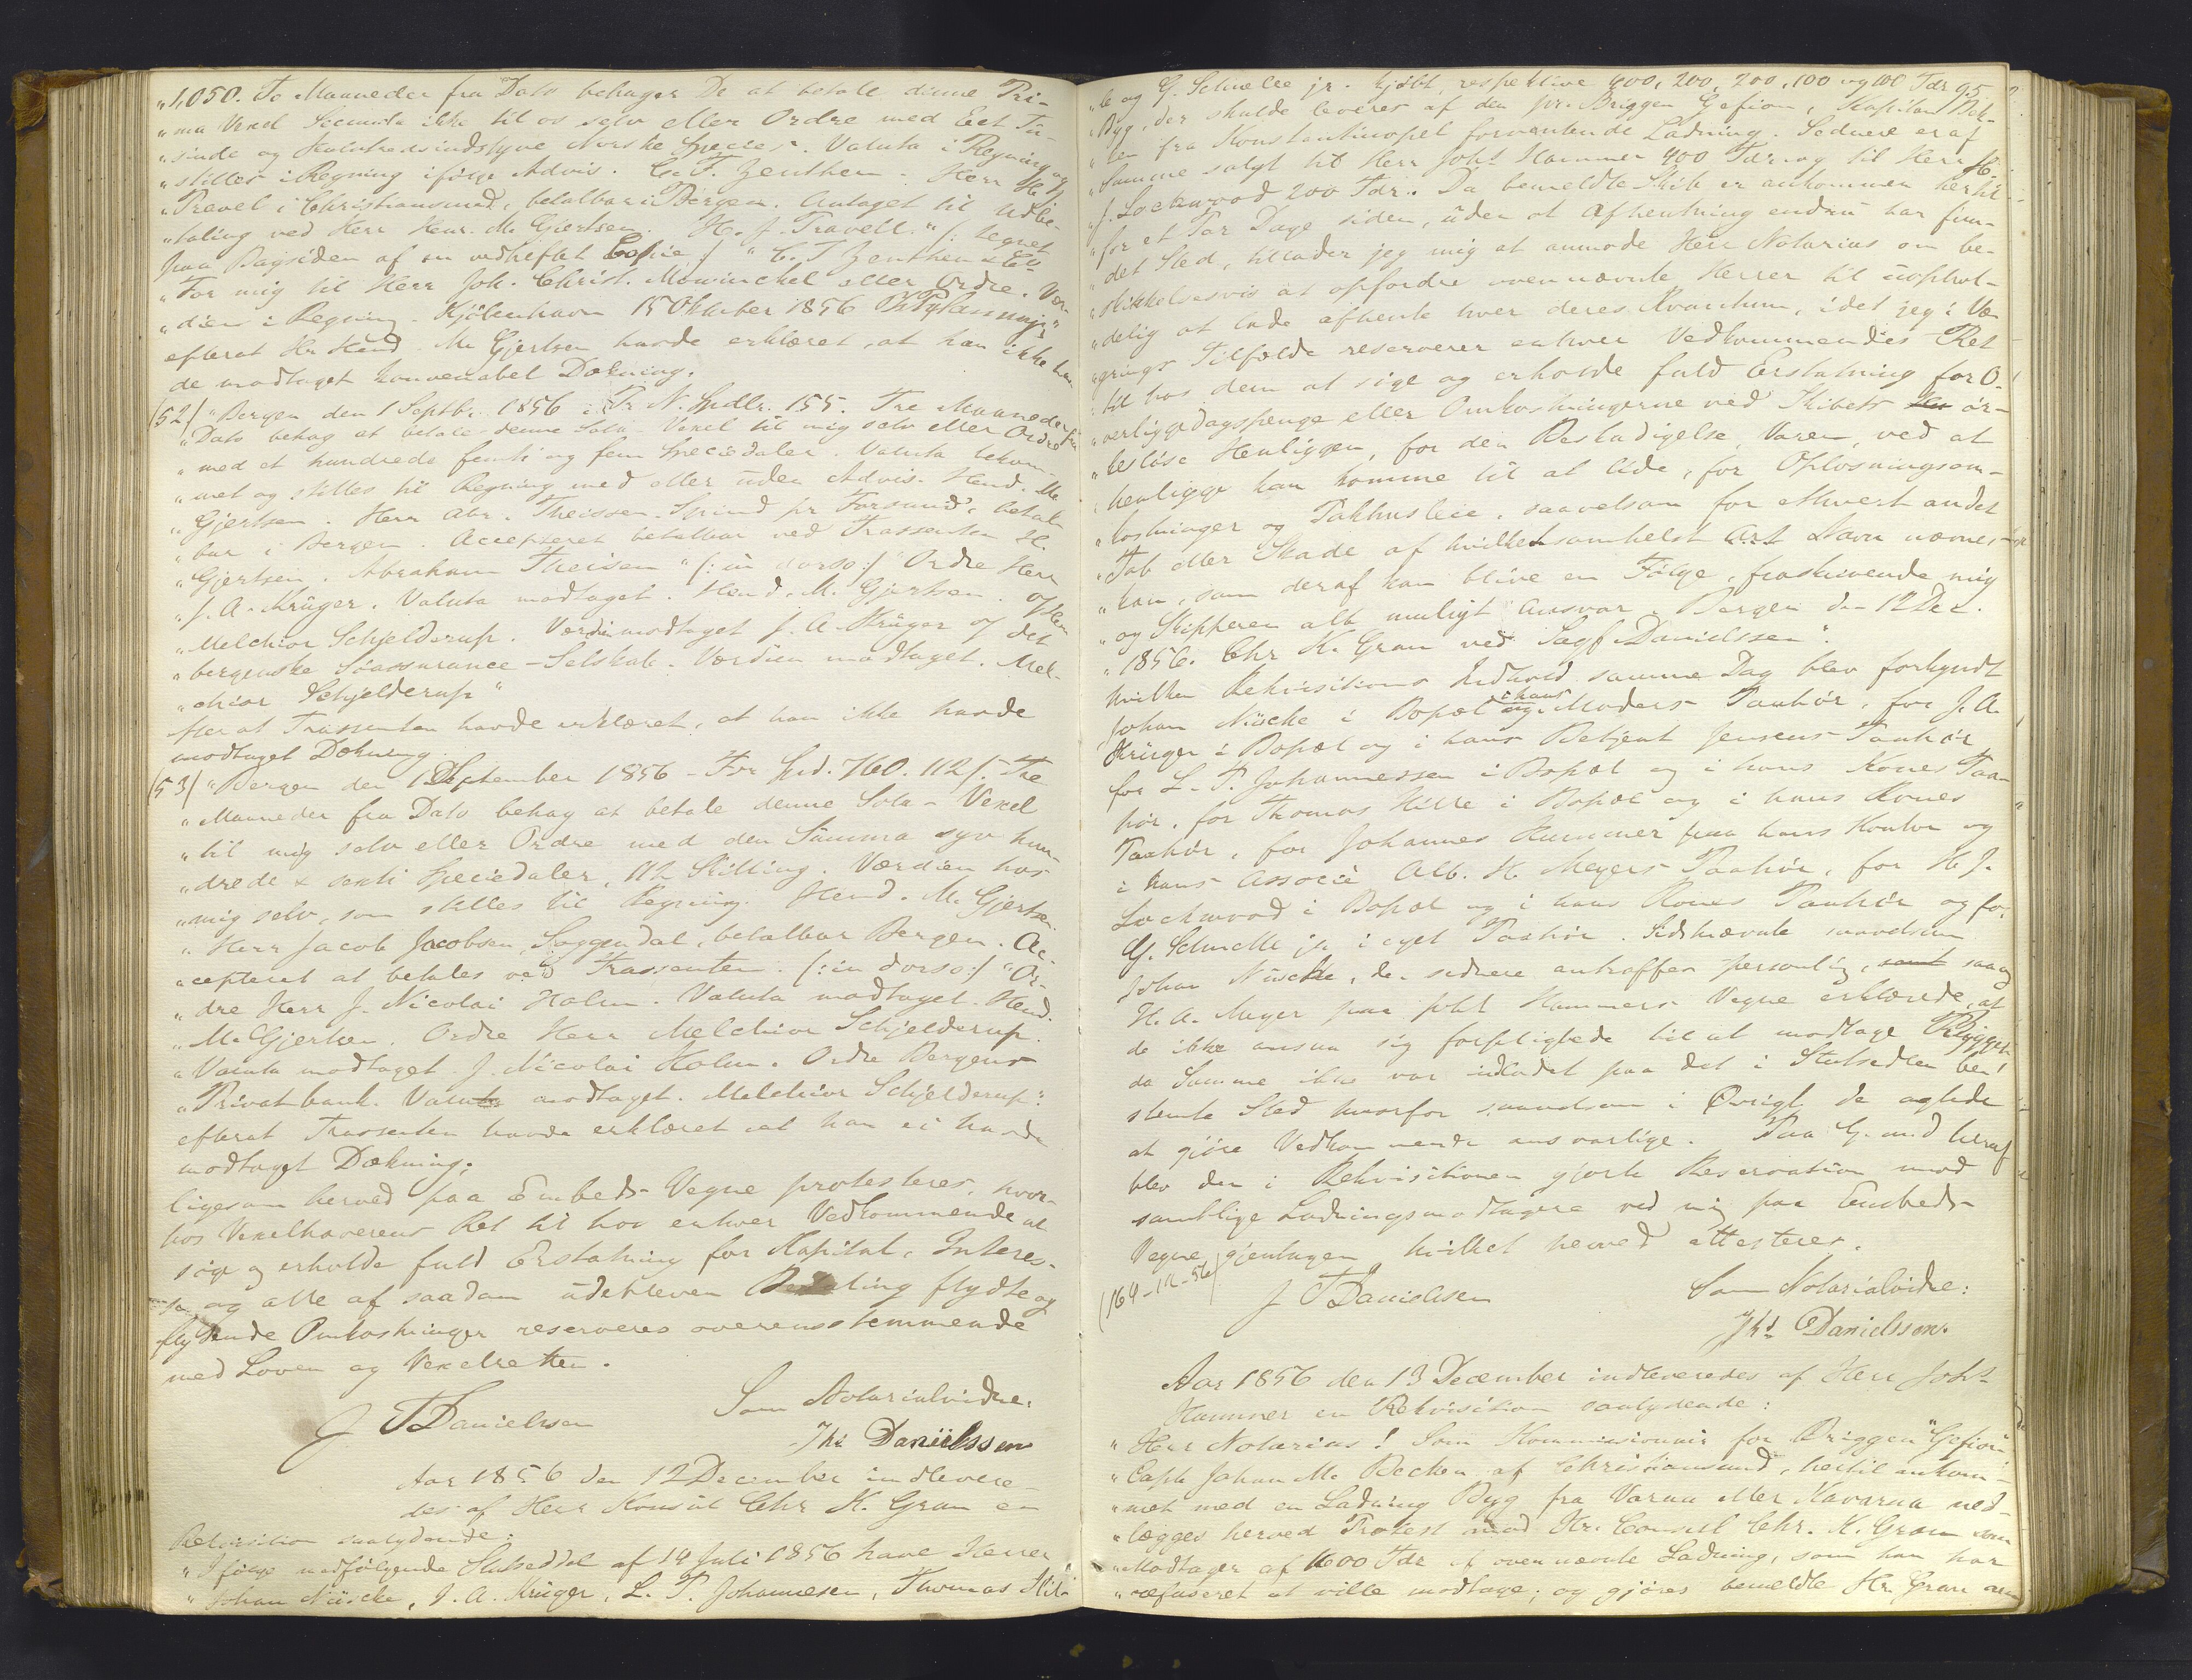 „1,050. To Maaneder fra Dato behager De at betale denne Pri-
„ma Vexel Secunda ikke til os selv eller Ordre med Eet Tu-
„sinde og Halvtredsindstyve Norske Species. Valuta i Regning og
„stilles i Regning ifølge Advis. C. F. Zenthen. Herr H. J.
„Travel i Christianssund, betalbar i Bergen. Antaget til Udbe-
„taling ved Herr Henr. M. Gjertsen. H. J. Travell." /: tegnet
paa Bagsiden af en vedheftet Copie :/ "C. F. Zenthen
„For mig til Herr Joh. Christ. Mowinckel eller Ordre. Vær-
„dien i Regning. Kjöbenhavn 15 Oktober 1856
efterat Hr. Hend. M. Gjertsen havde erklæret, at han ikke hav-
de modtaget konvenabel Dækning.
(52) „Bergen den 1 Septbr. 1856 – Pr N. Spdlr. 155. Tre Maaneder fra
„Dato behag at betale denne Sola-Vexel til mig selv eller Ordre
„med et hundrede femti og fem Speciedaler. Valuta bekom-
„met og stilles til Regning med eller uden Advis. Hend. M.
„Gjertsen. Herr Abr. Theissen Spind pr Farsund, betal-
„bar i Bergen. Accepteret betalbar ved Trassenten H.
„Gjertsen. Abraham Theisen" (: in dorso :) "Ordre Herr
„J. A. Krüger. Valuta modtaget. Hend. M. Gjertsen. Ordre Herr
„Melchior Schjelderup. Værdi modtaget J. A. Krüger og det
„bergenske Söassurance-Selskab. Værdien modtaget. Mel-
„chior Schjelderup"
efterat Trassenten havde erklæret, at han ikke havde
modtaget Dækning.
(53) „Bergen den 1 September 1856 – For Spd. 760. 112 ß. Tre
„Maaneder fra Dato behag at betale denne Sola-Vexel
„til mig selv eller Ordre med den Summa syv hun-
„drede & sexti Speciedaler, 112 Skilling. Værdien hos
„mig selv, som stilles til Regning. Hend. M. Gjertsen
„Herr Jacob Jacobsen, Soggendal, betalbar Bergen. Ac-
„cepteret at betales ved Trassenten. (: in dorso :) "Or-
„dre Herr J. Nicolai Holm. Valuta modtaget. Hend.
„M. Gjertsen. Ordre Herr Melchior Schjelderup.
„Valuta modtaget. J. Nicolai Holm. Ordre Bergens
„Privatbank. Valuta modtaget. Melchior Schjelderup:
efterat Trassenten havde erklæret at han ei havde
modtaget Dækning;
ligesom herved paa Embeds Vegne protesteres, hvor-
hos Vexelhaverens Ret til hos enhver Vedkommende at
søge og erholde fuld Erstatning for Kapital, Interes-
se og alle af saadan udebleven Betaling flydte og
flydende Omkostninger reserveres overensstemmende
med Loven og Vexelretten.
J T Danielssen
Som Notarialvidne:
Jhs Danielssen
Aar 1856 den 12 December indlevere-
des af Herr Konsul Chr. K. Gran en
Rekvisition saalydende:
„I følge medfølgende Slutseddel af 14 Juli 1856 have Herrer
„Johan Nüscke, J. A. Krüger, L. P. Johannesen, Thomas Hil-
„le og G. Schnelle jr. kjöbt, respektive 400, 200, 200, 100 og 100 Tdr 95
„Byg, der skulde leveres af den pr. Briggen Gefion, Kapitan Bek-
„ker fra Konstantinopel forventende Ladning. Sednere er af
„Samme solgt til Herr Johs Hammer 400 Tdr. og til Herr H.
„J. Lockwood 200 Tdr. Da bemeldte Skib er ankommen hertil
„for et Par Dage siden, uden at Afhentning endnu har fun-
„det Sted, tillader jeg mig at anmode Herr Notarius om be-
„skikkelsesvis at opfordre ovennævnte Herrer til uophol-
„delig at lade afhente hver deres Kvantum, idet jeg i Væ-
„grings Tilfælde reserverer enhver Vedkommendes Ret
„til hos dem at søge og erholde fuld Erstatning for O-
„verliggedagspenge eller Omkostningerne ved Skibets ör-
„keslöse Henliggen, for den Beskadigelse, Varen, ved at
„henligge kan komme til at lide, for Oplosningsom-
„kostninger og Pakhusleie, saavelsom for ethvert andet
„Tab eller Skade af hvilketsomhelst Art Navn nævnes
„kan, som deraf kan blive en Følge, fraskrivende mig
„og Skipperen alt muligt Ansvar. Bergen den 12 Dec.
„1856. Chr K. Gran ved Sagf. Danielssen".
hvilken Rekvisitions Indhold samme Dag blev forkyndt
Johan Nüscke i Bopæl og i hans Moders Paahör, for J. A.
Krüger i Bopæl og i hans Betjent Jensens Paahör
for L. P. Johannessen i Bopæl og i hans Kones Paa-
hör, for Thomas Hille i Bopæl og i hans Kones
Paahör, for Johannes Hammer paa hans Kontor og
i hans Associe Alb. H. Meyers Paahör, for H. J.
Lockwood i Bopæl og i hans Kones Paahör og for
G. Schnelle jr i eget Paahör. Sidstnævnte saavelsom
Johan Nüscke, der sednere antraffes personlig, samt saa og
H. A. Meyer paa Johs Hammers Vegne erklærede, at
de ikke ansaa sig forpligtede til at modtage Bygget
da Samme ikke var indladet paa det i Slutsedlen be-
stemte Sted hvorfor saavelsom i Øvrigt de agtede
at gjöre Vedkommende ansvarlige. Paa Grund heraf
blev den i Rekvisitionen gjorte Reservation mod
samtlige Ladningsmodtagere ved mig paa Embeds
Vegne gjentagen hvilket herved attesteres.
(164-12-56)
J T Danielssen
Som Notarialvidne:
Jhs Danielssen.
Aar 1856 den 13 December indleveredes af Herr Johs
Hammer en Rekvisition saalydende:
„Herr Notarius! Som Kommissionair for Briggen "Gefion"
„Capt Johan M. Becker af Christianssund, hertil ankom-
„met med en Ladning Byg fra Varna eller Kavarna ned-
„lægges herved Protest mod Hr. Consul Chr. K. Gran som
„Modtager af 1600 Tdr af ovennævnte Ladning, som han har
„refuseret at ville modtage; og gjöres bemeldte Hr. Gran an-